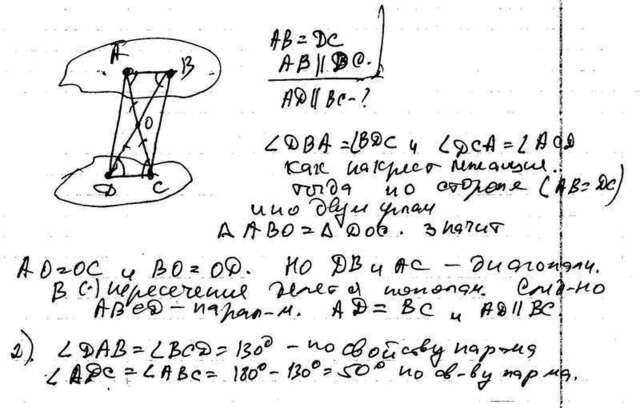 A
B
O
D
C
AB = DC
AB || DC.
AD || BC - ?
∠DBA = ∠BDC и ∠DCA = ∠ACD
как накрест лежащие.
тогда по стороне (AB = DC)
и по двум углам
△ABO = △DOC. Значит
AO = OC и BO = OD. Но DB и AC – диагонали.
В (·) пересечения делятся пополам. След-но
ABCD – парал-м. AD = BC и AD || BC.
2). ∠DAB = ∠BCD = 130° – по свойству пар-ма
∠ADC = ∠ABC = 180° - 130° = 50° по св-ву пар-ма.